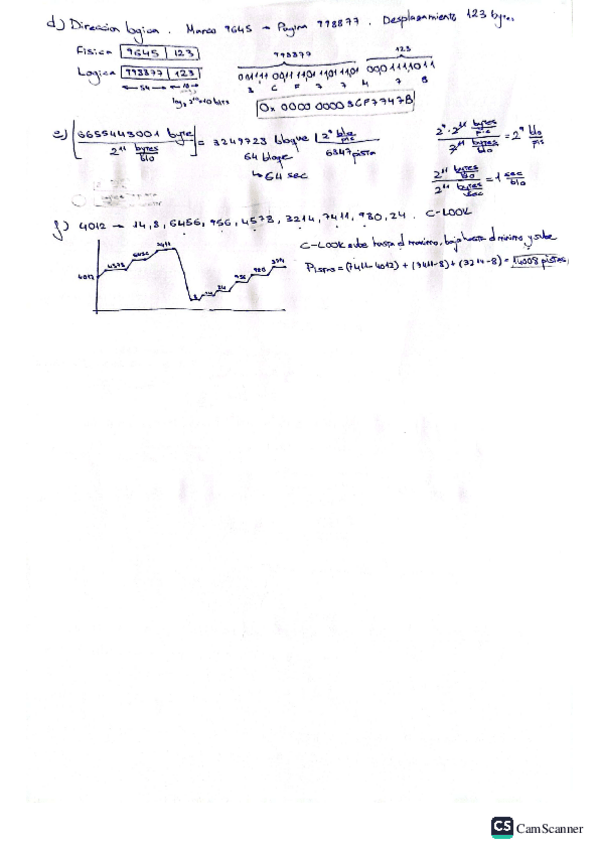 d) Direccion logica. Marco 9645 → Pagina 998877. Desplazamiento 123 bytes
Fisica 9645 | 123
998877 123
Logica 998877 | 123
001111 0011 1101 1101 1101 0001111011
3 C F 7 7 4 7 B
← 54 → ← 10 →
log₂ 2¹⁰ = 10 bits
0x 0000 00003CF7747B
e) 6655443001 byte / 2¹¹ bytes/blo = 3249723 bloque | 2⁹ blo/pis
64 bloque 6347 pista
↳ 64 sec
2⁹ · 2¹¹ bytes/pis / 2¹¹ bytes/blo = 2⁹ blo/pis
2¹¹ bytes/blo / 2¹¹ bytes/sec = 1 sec/blo
f) 4012 → 14, 8, 6456, 956, 4578, 3214, 7411, 980, 24. C-LOOK
C-LOOK sube hasta el maximo, baja hasta el minimo y sube
Pistas = (7411-4012) + (7411-8) + (3214-8) = 14008 pistas
4012 4578 6456 7411 8 14 24 956 980 3214
CS CamScanner